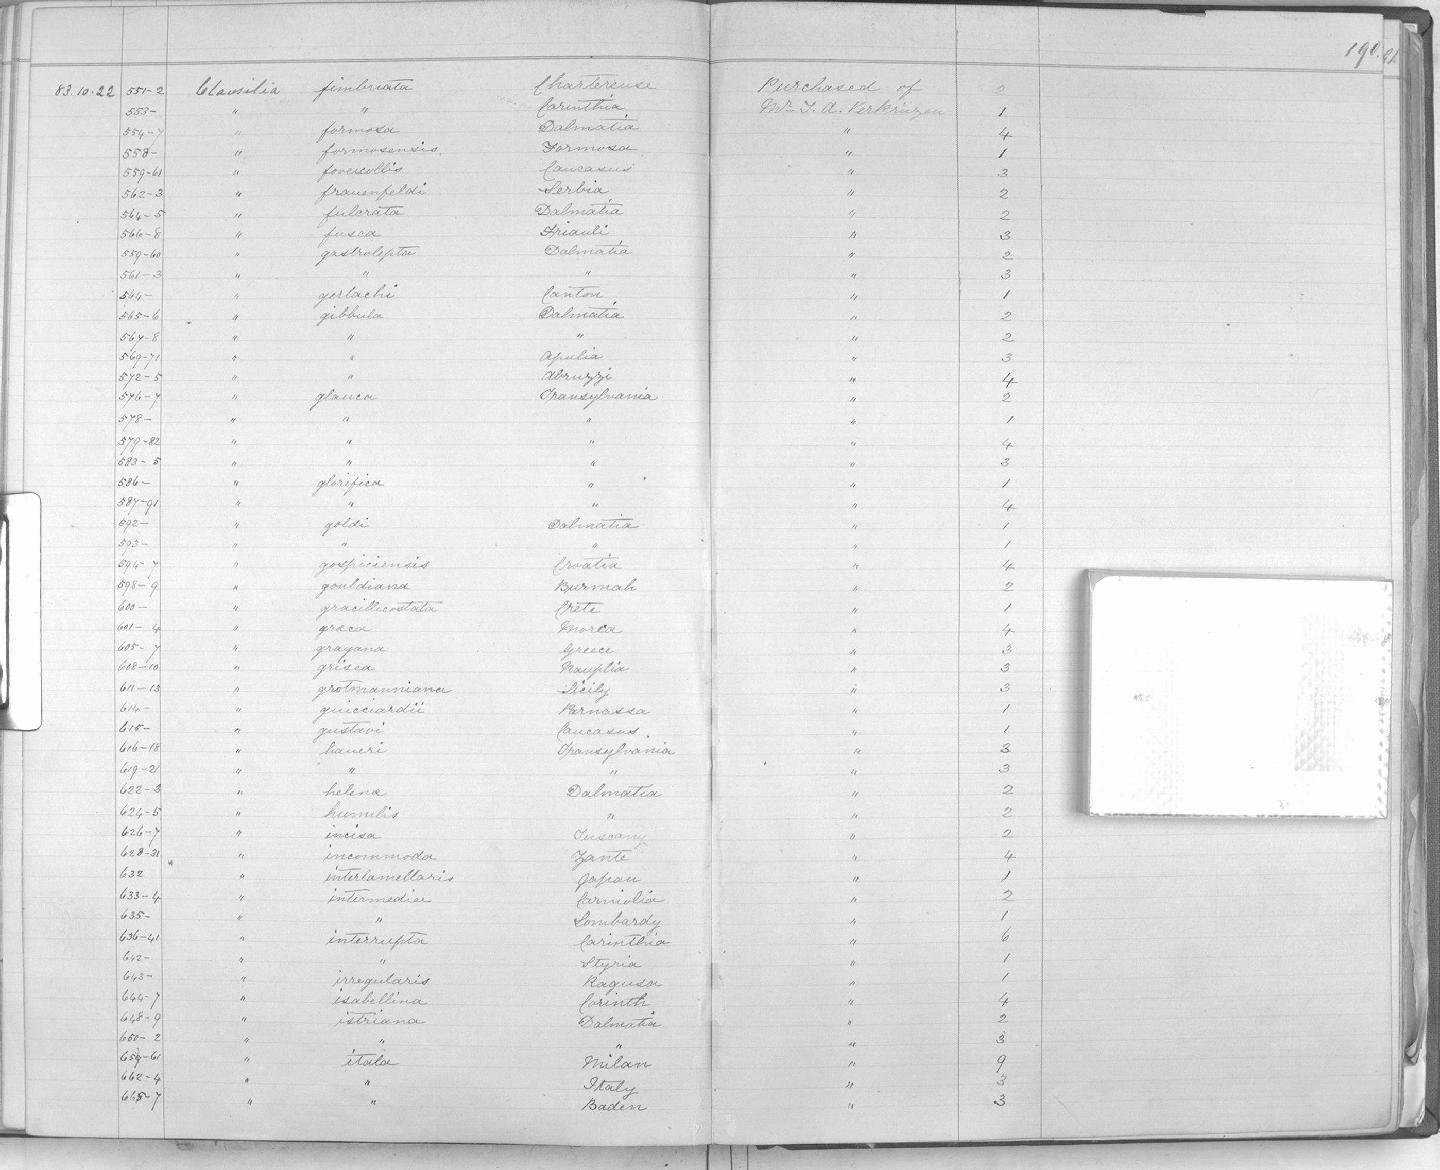 190.
83.10.22 551-2 Clausilia fimbriata Chartereuse Purchased of 2
553- " " Carinthia Mr T. A. Verkrüzen 1
554-7 " formosa Dalmatia " 4
558- " formosensis. Formosa " 1
559-61 " foveicollis Caucasus " 3
562-3 " frauenfeldi Serbia " 2
564-5 " fulcrata Dalmatia " 2
566-8 " fusca Friauli " 3
559-60 " gastrolepta Dalmatia " 2
561-3 " " " 3
564- " gerlachi Canton " 1
565-6 " gibbula Dalmatia " 2
567-8 " " " " 2
569-71 " " Apulia " 3
572-5 " " Abruzzi " 4
576-7 " glauca Transylvania " 2
578- " " " " 1
579-82 " " " " 4
583-5 " " " " 3
586- " glorifica " " 1
587-91 " " " " 4
592- " goldi Dalmatia " 1
593- " " " " 1
594-7 " gospiciensis Croatia " 4
598-9 " gouldiana Burmah " 2
600- " gracillicostata Crete " 1
601-4 " græca Morea " 4
605-7 " grayana Greece " 3
608-10 " grisea Nauplia " 3
611-13 " grotmanniana Sicily " 3
614- " guicciardii Parnassa " 1
615- " gustavi Caucasus " 1
616-18 " haueri Transylvania " 3
619-21 " " " " 3
622-3 " helenæ Dalmatia " 2
624-5 " humilis " " 2
626-7 " incisa Tuscany " 2
628-31 " incommoda Zante " 4
632 " interlamellaris Japan " 1
633-4 " intermedia Carniolia " 2
635- " Lombardy " 1
636-41 " interrupta Carinthia " 6
642- " " Styria " 1
643- " irregularis Ragusa " 1
644-7 " isabellina Corinth " 4
648-9 " istriana Dalmatia " 2
650-2 " " " " 3
659-61 " itala Milan " 9
662-4 " " Italy " 3
665-7 " " Baden " 3